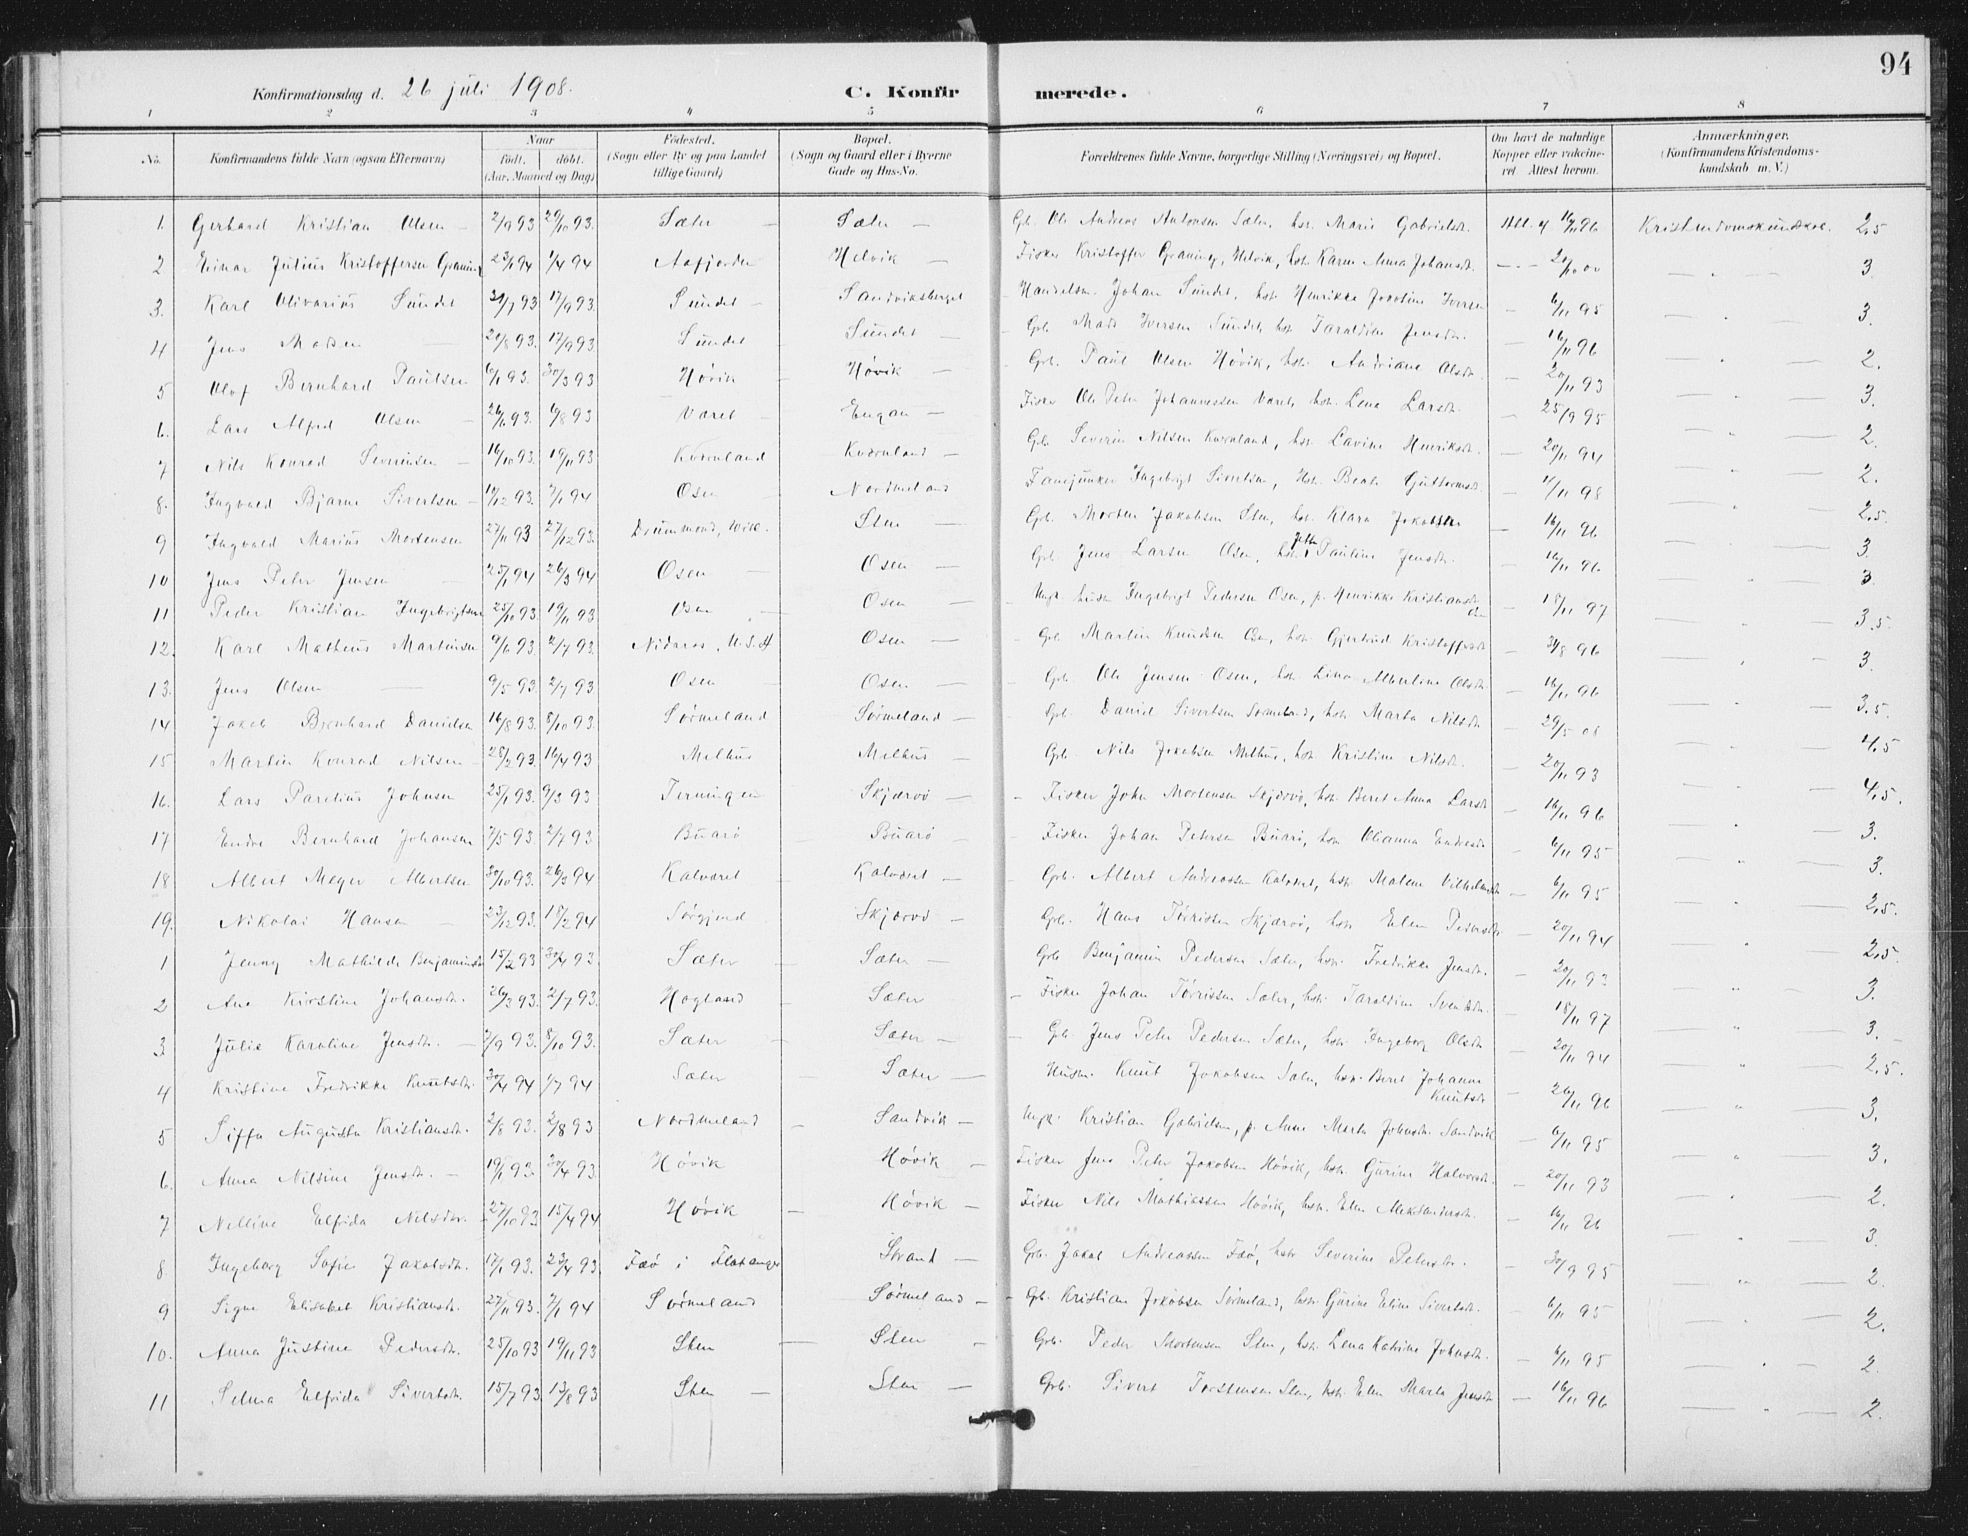 94
Konfirmationsdag d. 26 juli 1908. C. Konfirmerede.
1 2 3 4 5 6 7 8
No. Konfirmandens fulde Navn (ogsaa Efternavn) Naar født. døbt. (Aar, Maaned og Dag) Fødested. (Sogn eller By og paa Landet tillige Gaard) Bopæl. (Sogn og Gaard eller i Byerne Gade og Hus-No. Forældrenes fulde Navne, borgerlige Stilling (Næringsvei) og Bopæl. Om havt de naturlige Kopper eller vakcineret. Attest herom. Anmærkninger. (Konfirmandens Kristendomskundskab m. V.)
1. Gerhard Kristian Olsen — 2/9 93 29/10 93. Sæter — Sæter — Gb. Ole Andreas Antonsen Sæter, hst. Marie Gabrielsdt. Att. af 16/11 96 Kristendomskundskab. 2,5
2 Einar Julius Kristoffersen Graning 23/1 94 1/4 94 Aafjorden Helvik — Fisker Kristoffer Graning, Helvik, hst. Karen Anna Johansdt. — 20/10 00 — " — 3
3. Karl Olivarius Sundet 31/7 93 17/9 93. Sundet — Sandviksberget Handelsm. Johan Sundet, hst. Henrikke Jakobine Iversen 6/11 95 — " — 3.
4 Jens Madsen — 20/8 93. 17/9 93 Sundet — Sundet — Grb. Mads Iversen Sundet, hst. Taraldine Jensdt. — 16/11 96 — " — 2.
5 Olaf Bernhard Paulsen 6/1 93. 30/3 93 Høvik — Høvik — Grb. Paul Olsen Høvik, hst. Andriane Olsdt. — 20/11 93 — " — 3.
6. Lars Alfred Olsen — 26/6 93 6/8 93 Været — Engan — Fisker Ole Peter Johannessen Været, hst. Lena Larsdt. — 25/9 95 — " — 2.
7 Nils Konrad Severinsen — 16/10 93. 19/11 93 Kvernland Kvernland — Grb. Severin Nilsen Kvernland, hst. Lavine Henriksdt. — 20/11 94 — " — 2.
8. Ingvald Bjarne Sivertsen — 17/12 93. 7/1 94 Osen — Nordmeland Fanejunker Ingebrigt Sivertsen, hst. Beate Guttormsdt. — 11/11 98 — " — 2,5.
9 Ingvald Marius Mortensen 27/11 93 27/12 93. Drummond, Wisc. Sten — Grb. Morten Jakobsen Sten, hst. Klara Jakobsdt. — 16/11 96 — " — 3.
10 Jens Peter Jensen — 25/1 94 26/3 94 Osen — Osen — Grb. Jens Larsen Osen, hst. Jette Pauline Jensdt. — 16/11 96 — " — 3
11 Peder Kristian Ingebrigtsen 25/10 93. 19/11 93 Osen — Osen — Ungk. Ingebrigt Pedersen Osen, p. Henrikke Kristiansdt. — 18/11 97 — " — 3.5.
12. Karl Matheus Martinsen 9/6 93 2/7 93. Nidaros, U.S.A Osen — Grb. Martin Knudsen Osen, hst. Gjertrud Kristoffersdt. 31/8 96 — " — 3.
13. Jens Olsen — 9/5 93. 2/7 93 Osen — Osen — Grb. Ole Jensen Osen, hst. Lina Albertine Olsdt. — 16/11 96 — " — 3.5.
14 Jakob Bernhard Danielsen 16/8 93. 8/10 93. Sørmeland Sørmeland — Grb. David Sivertsen Sørmeland, hst. Marta Nilsdt. 29/5 08 — " — 4,5
15 Martin Konrad Nilsen — 28/2 93. 16/4 93 Melhus — Melhus — Grb. Nils Jakobsen Melhus, hst. Kristine Nilsdt. — 20/11 93 — " — 4,5.
16. Lars Paretius Johnsen 25/1 93. 9/3 93 Terningen Skjærvø — Fisker John Mortensen Skjærvø, hst. Beret Anna Larsdt. — 16/11 96 — " — 3.
17 Endre Bernhard Johansen 7/5 93. 2/7 93 Buarø — Buarø — Fisker Johan Petersen Buarø, hst. Olianna Endresdt. — 6/11 95 — " — 3.
18 Albert Meyer Albertsen 30/10 93. 26/3 94 Kalvøret — Kalvøret — Grb. Albert Andreassen Kalvøret, hst. Malene Vilhelmsdt. — 6/11 95 — " — 2,5.
19. Nikolai Hansen — 23/12 93. 18/2 94 Sørgjerd — Skjærvø — Grb. Hans Tørrissen Skjærvø, hst. Elen Pedersdt. — 20/11 94 — " — 2,5.
1 Jenny Mathilde Benjaminsdt. 15/2 93 30/4 93. Sæter — Sæter — Grb. Benjamin Pedersen Sæter, hst. Fredrikke Jensdt. — 20/11 93 — " — 3.
2 Ane Kirstine Johansdt. 26/3 93. 2/7 93. Hogland — Sæter — Fisker Johan Tørrissen Sæter, hst. Taraldine Svendsdt. — 18/11 97 — " — 3.
3. Julie Karoline Jensdt. — 7/9 93. 8/10 93. Sæter — Sæter — Gb. Jens Peter Pedersen Sæter, hst. Ingeborg Olsdt. — 20/11 94 — " — 2,5.
4 Kristine Fredrikke Knutsdt. 30/4 94 1/7 94 Sæter — Sæter — Husm. Knut Jakobsen Sæter, hst. Beret Johanne Knutsdt. — 26/11 96 — " — 3.
5 Siffa Augusta Kristiansdt. 2/8 93. 2/8 93 Nordmeland — Sandvik — Ungk. Kristian Gabrielsen, p. Anne Marta Johnsdt. Sandvik — 6/11 95 — " — 3.
6. Anna Nilsine Jensdt. — 19/1 93. 30/4 93. Høvik Høvik — Fisker Jens Peter Jakobsen Høvik, hst. Gurine Halvorsdt. — 20/11 93 — " — 2.
7 Nelline Elfrida Nilsdtr. 27/10 93 15/4 94 Høvik — Høvik — Fisker Nils Mathiassen Høvik, hst. Elen Aleksandersdt. — 16/11 96 — " — 3.
8 Ingeborg Sofie Jakobsdt. 17/1 93. 23/4 93 Faø i Flatanger Strand — Grb. Jakob Andreassen Faø, hst. Severine Petersdt. — 30/9 95 — " — 2.
9 Signe Elisabet Kristiansdt. 27/11 93. 7/1 94 Sørmeland Sørmeland — Gb. Kristian Jakobsen Sørmeland, hst. Gurine Eline Sivertsdt. — 6/11 95 — " — 2.
10. Anna Justine Pedersdt. 25/10 93 19/11 93 Sten — Sten — Grb. Peder Mortensen Sten, hst. Lena Katrine Johnsdt. — 6/11 95 — " — 2
11 Selma Elfrida Sivertsdt. 15/7 93. 13/8 93 Sten — Sten — Grb. Sivert Torstensen Sten, hst. Elen Marta Jensdt. — 16/11 96 — " — 2.